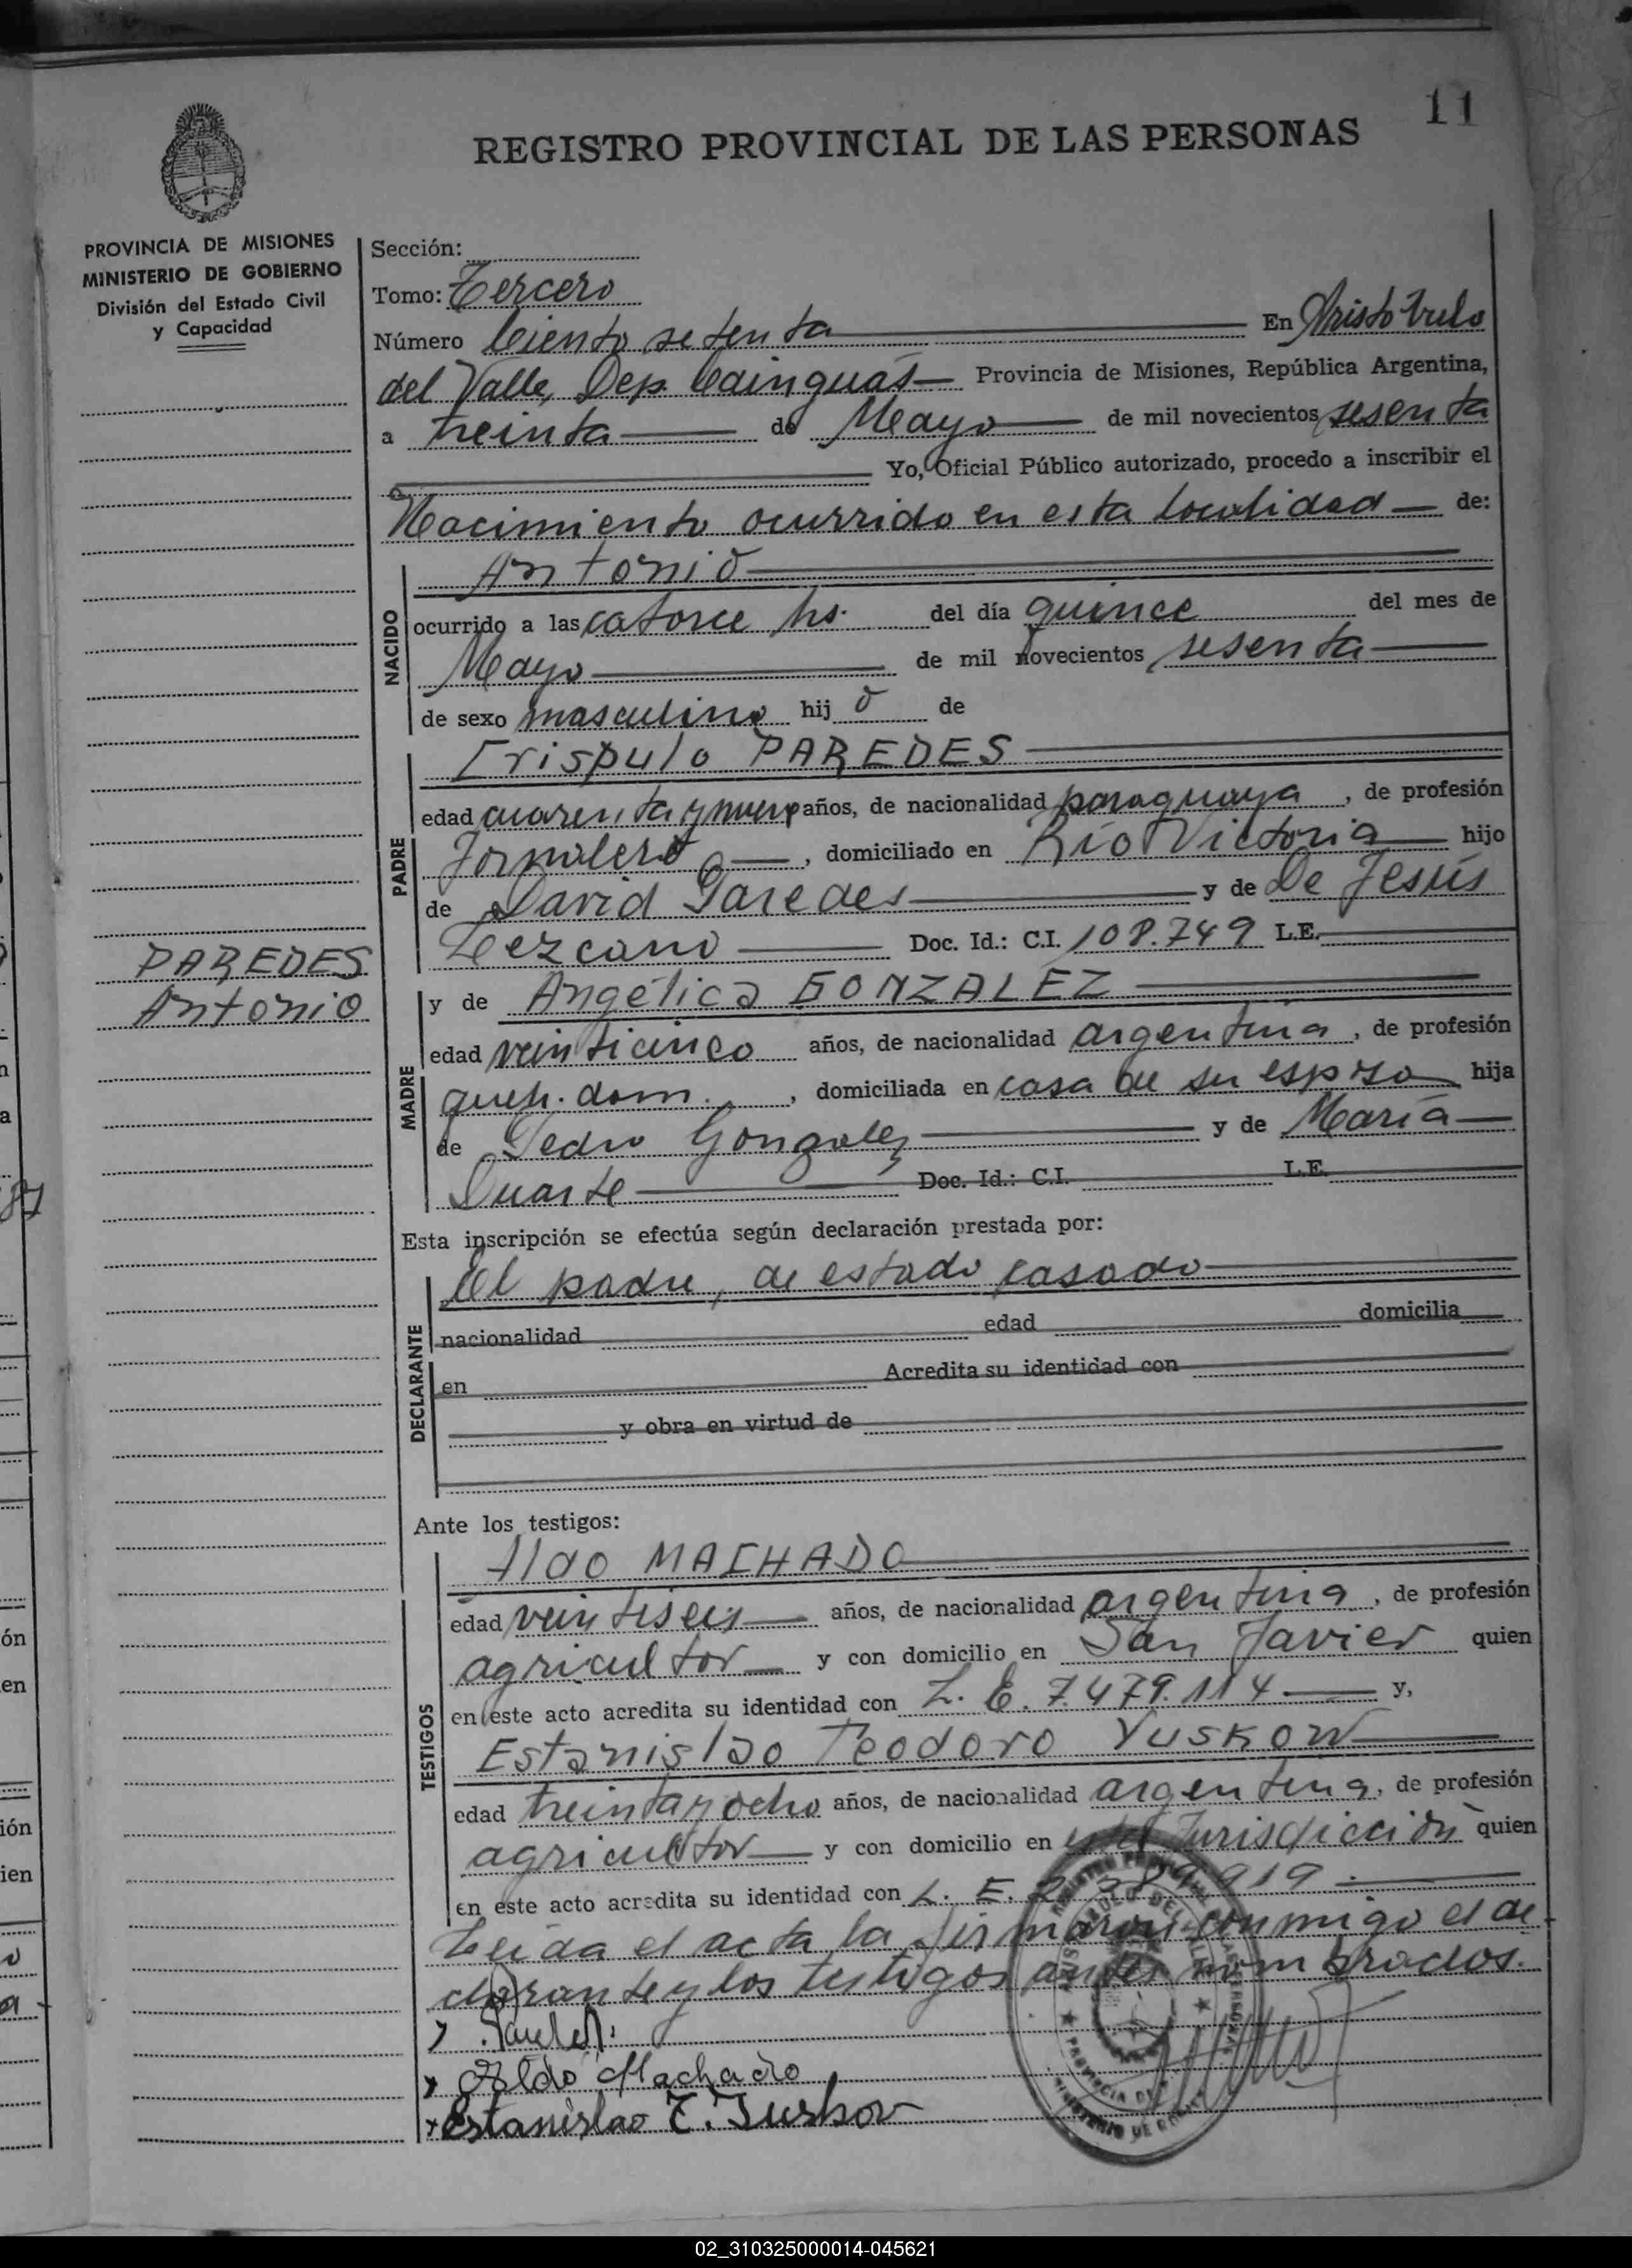 11
REGISTRO PROVINCIAL DE LAS PERSONAS
PROVINCIA DE MISIONES
MINISTERIO DE GOBIERNO
División del Estado Civil
y Capacidad
Sección:
Tomo: Tercero
Número Ciento setenta En Aristóbulo
del Valle, Dep. Cainguás Provincia de Misiones, República Argentina,
a treinta de Mayo de mil novecientos sesenta
Yo, Oficial Público autorizado, procedo a inscribir el
Nacimiento ocurrido en esta localidad de:
NACIDO
Antonio
ocurrido a las catorce hs. del día quince del mes de
Mayo de mil novecientos sesenta
de sexo masculino hijo de
PADRE
Crispulo PAREDES
edad cuarenta y nueve años, de nacionalidad paraguaya, de profesión
Jornalero, domiciliado en Río Victoria hijo
de David Paredes y de De Jesús
Lezcano Doc. Id.: C.I. 108.749 L.E.
PAREDES
Antonio
MADRE
y de Angélica GONZALEZ
edad veinticinco años, de nacionalidad argentina, de profesión
queh. dom., domiciliada en casa de su esposo hija
de Pedro Gonzalez y de María
Duarte Doc. Id.: C.I. L.E.
Esta inscripción se efectúa según declaración prestada por:
DECLARANTE
El padre, de estado casado
nacionalidad edad domicilia
en Acredita su identidad con
y obra en virtud de
Ante los testigos:
TESTIGOS
Aldo MACHADO
edad veintiseis años, de nacionalidad argentina, de profesión
agricultor y con domicilio en San Javier quien
en este acto acredita su identidad con L. E. 7.479.114 y,
Estanislao Teodoro YUSKOW
edad treinta y ocho años, de nacionalidad argentina, de profesión
agricultor y con domicilio en esta Jurisdicción quien
en este acto acredita su identidad con L. E.
Leída el acta la firmaron conmigo el de-
clarante y los testigos antes nombrados.
Aldo Machado
Estanislao T. Juskow
02_310325000014-045621